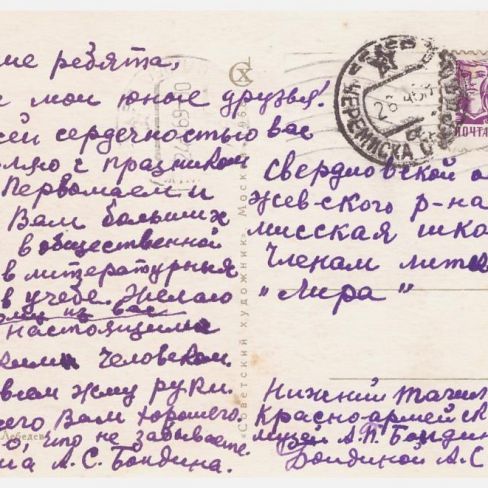 ие ребята,
мои юные друзья!
сей сердечностью вас
ляю с праздником
Первомаем и
Вам больших
в общественной
в литературныя
в учебе. Желаю
из вас
настоящими
человеком
всем жму руки.
его Вам хорошего.
о, что не забываете
А.С. Бондина.
Лебедев
«Советский художник» Москва
ЧЕРЕМИССКА СВЕРД
ПОЧТА
Свердловской о
жевского р-на
мисская шко
Членам лите
„Лира"
Нижний Тагил
Красноармейск
музей А.П. Бондин
Бондиной А.С